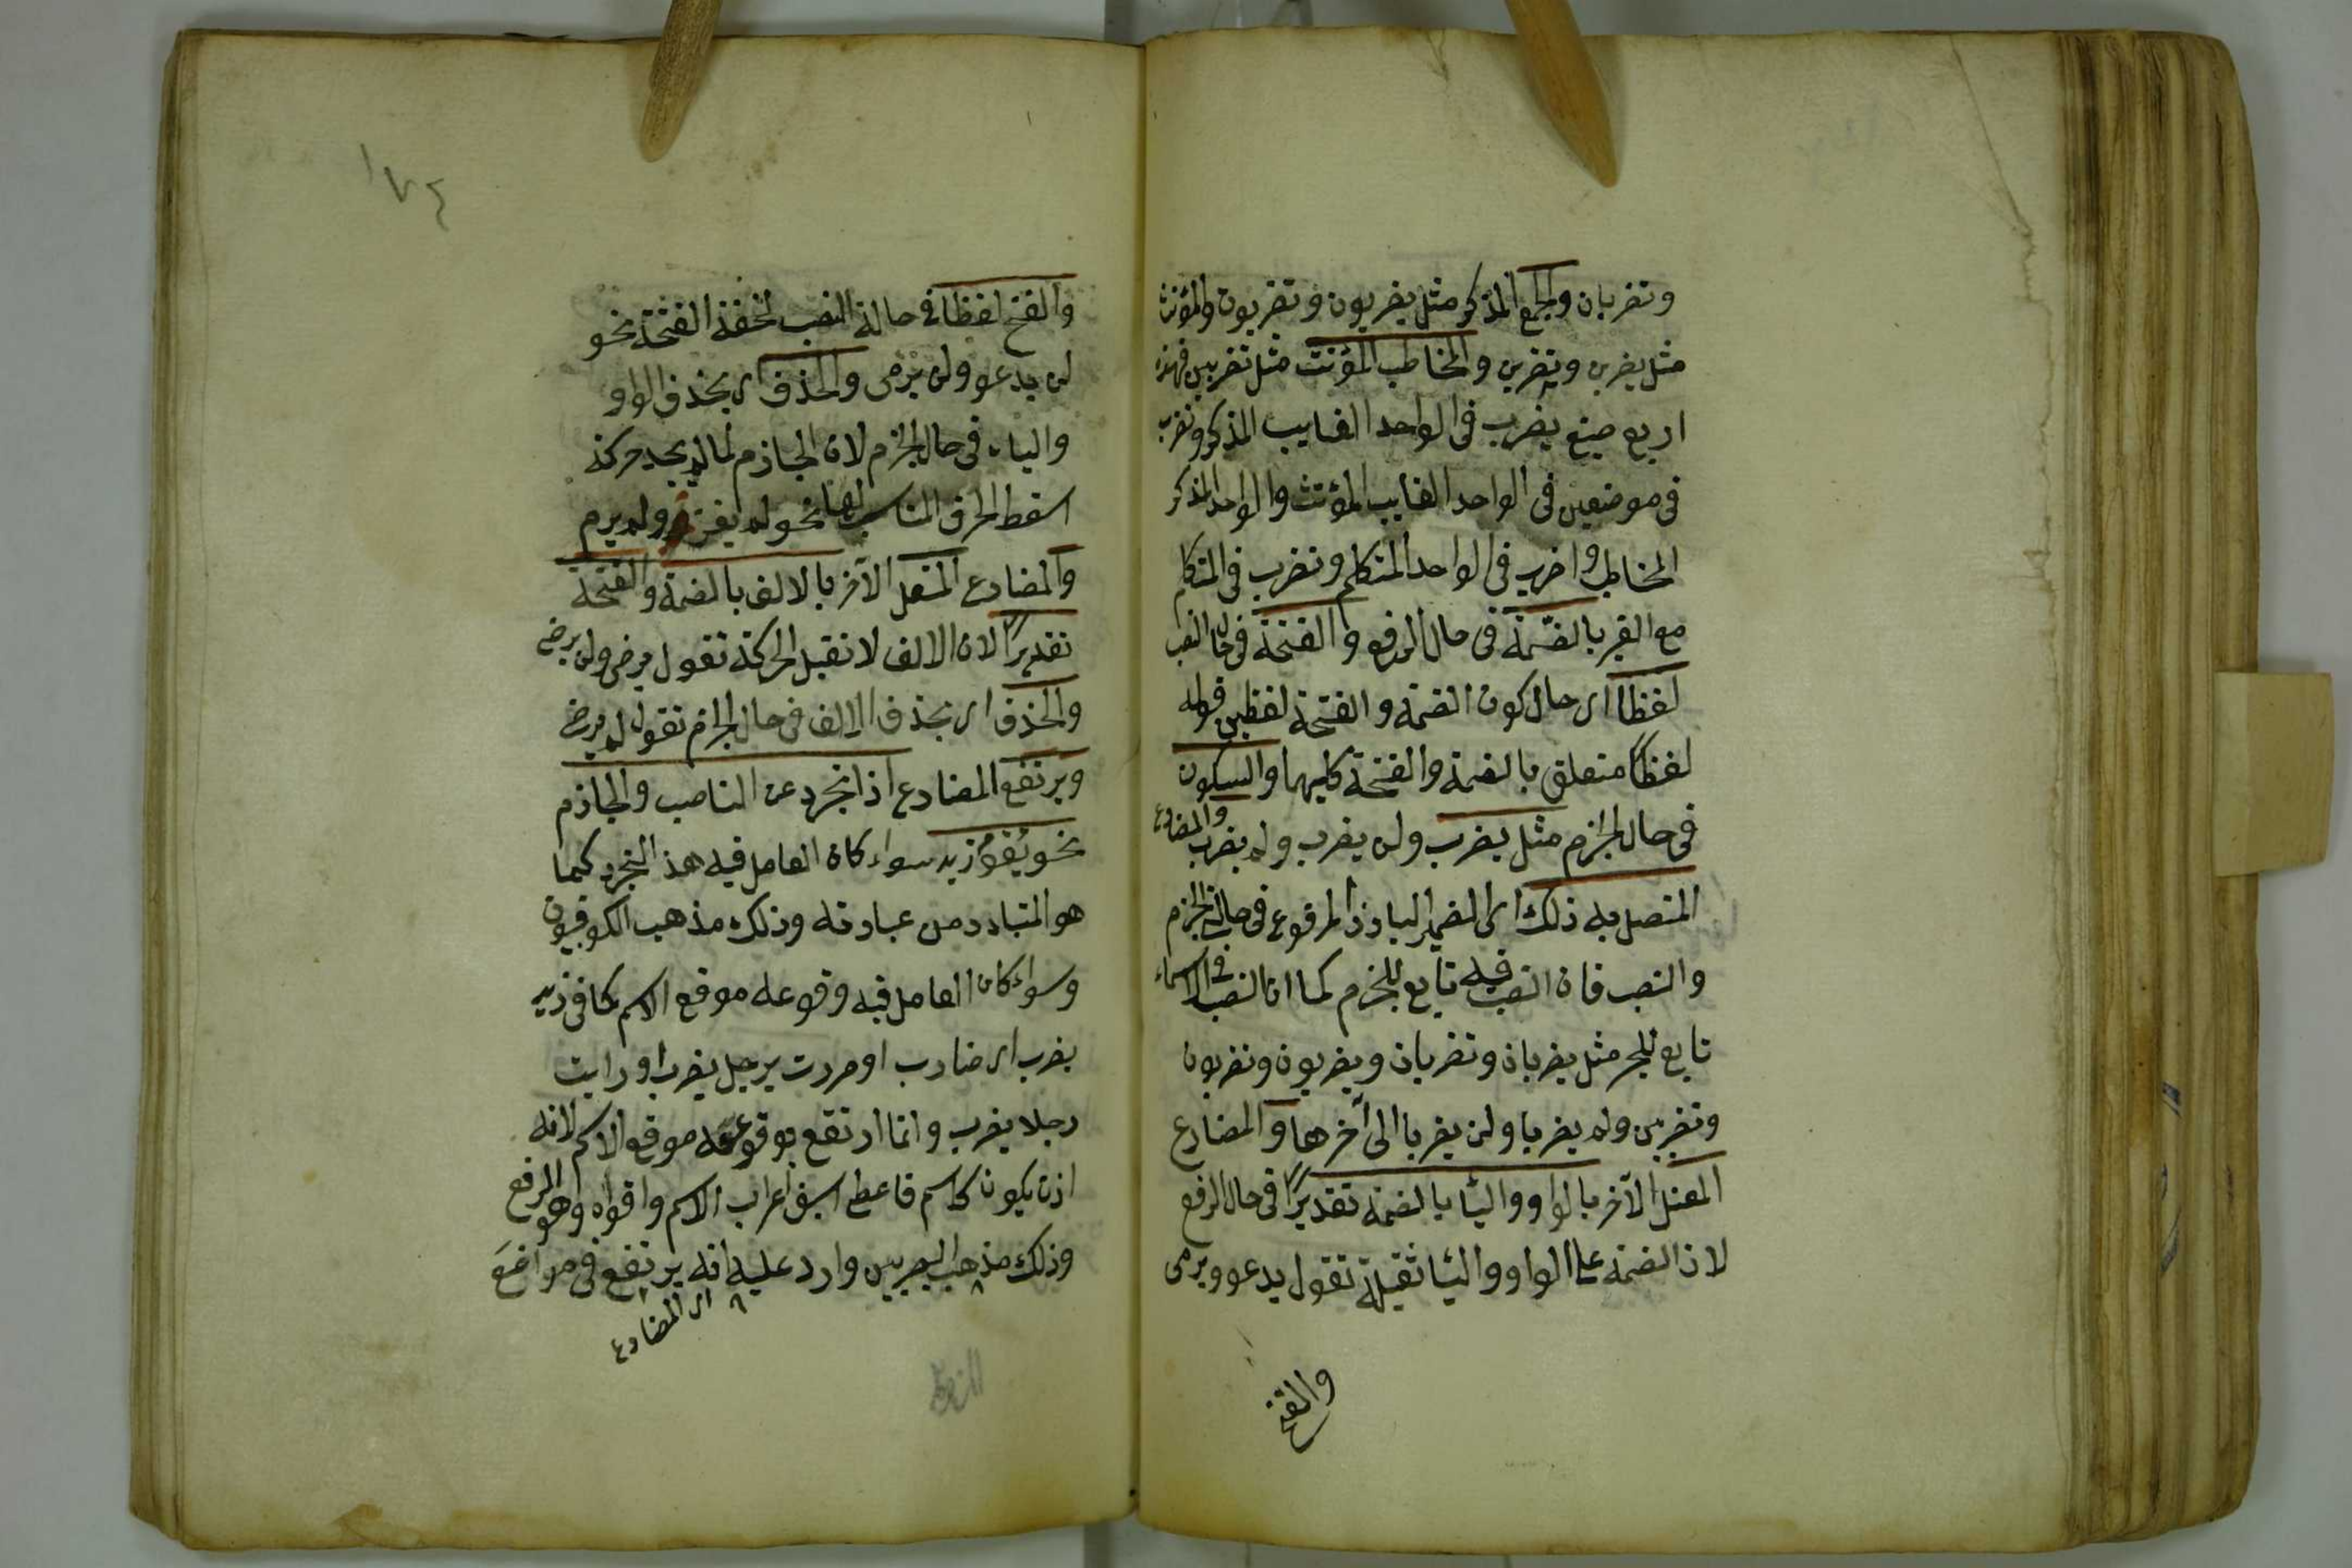 وتضربان والجمع المذكر مثل يضربون وتضربون والمؤنث
مثل يضربن وتضربن والمخاطب المؤنث مثل تضربين فهذه
اربع صيغ يضرب فى الواحد الغايب المذكر وتضرب
فى موضعين فى الواحد الغايب المؤنث والواحد المذكر
المخاطب واضرب فى الواحد المتكلم ونضرب فى المتكلم
مع الغير بالضمة فى حال الرفع والفتحة فى حال النصب
لفظا اى حال كون الضمة والفتحة لفظين قوله
لفظاً متعلق بالضمة والفتحة كليهما والسكون
فى حال الجزم مثل يضرب ولن يضرب ولم يضرب والمضارع
المتصل به ذلك اى الضمير البارز المرفوع فى حالة الجزم
والنصب فان النصب فيه تابع للجزم كما ان النصب فى الاسماء
تابع للجر مثل يضربان وتضربان ويضربون وتضربون
وتضربين ولم يضربا ولن يضربا الى آخرهما والمضارع
المعتل الآخر بالواو والياء بالضمة تقديرًا فى حال الرفع
لان الضمة على الواو والياء ثقيلة تقول يدعو ويرمى
والفتح
١٧٤
والفتح لفظا فى حالة النصب لخفة الفتحة نحو
لن يدعو ولن يرمى والحذف اى بحذف الواو
والياء فى حال الجزم لان الجازم لما لم يجد حركة
اسقط الحرف المناسب لها نحو لم يغز ولم يرم
والمضارع المعتل الآخر بالالف بالضمة والفتحة
تقديرًا لان الالف لا تقبل الحركة تقول يرضى ولن يرضى
والحذف اى بحذف الالف فى حال الجزم تقول لم يرض
ويرتفع المضارع اذا تجرد عن الناصب والجازم
نحو يقوم زيد سواء كان العامل فيه هذا التجرد كما
هو المتبادر من عبارته وذلك مذهب الكوفيون
وسواء كان العامل فيه وقوعه موقع الاسم كما فى زيد
يضرب اى ضارب او مررت برجل يضرب او رايت
رجلا يضرب وانما ارتفع بوقوعه موقع الاسم لانه
اذن يكون كاسم فاعطى اسبق اعراب الاسم واقواه وهو الرفع
وذلك مذهب البصريين وارد عليه انه يرتفع فى مواضع
اى المضارع